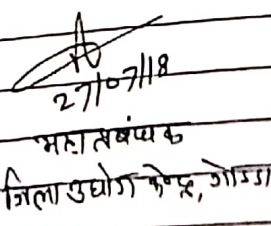 27/07/18
महाप्रबंधक
जिला उद्योग केन्द्र, गोड्डा